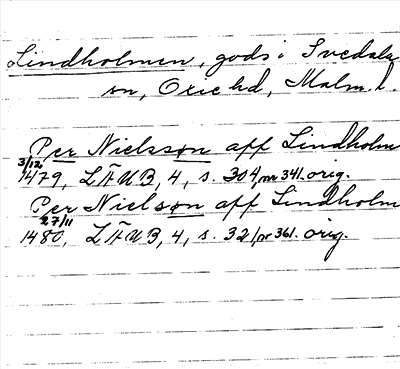 Lindholmen, gods i Svedala
sn, Oxie hd, Malm. l.
Per Nielsson aff Lindholm
3/12
1479, LÄUB, 4, s. 304, nr 341. orig.
Per Nielsson aff Lindholm
27/11
1480, LÄUB, 4, s. 321, nr 361. orig.